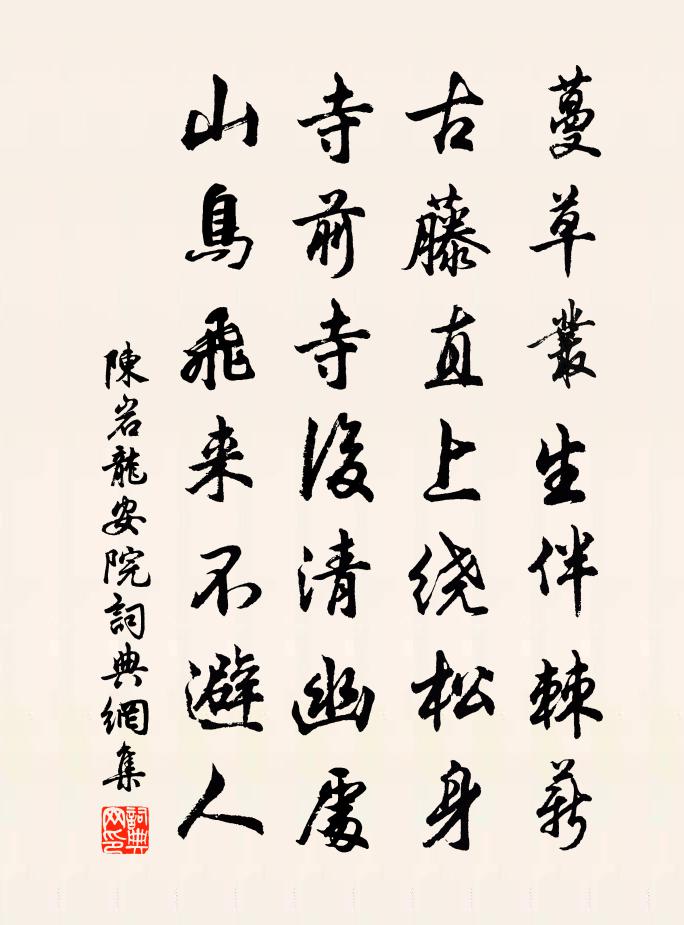 蔓草叢生伴棘薪
古藤直上绕松身
寺前寺後清幽處
山鳥飛来不避人
陳岩龍安院詞典網集
詞典网印